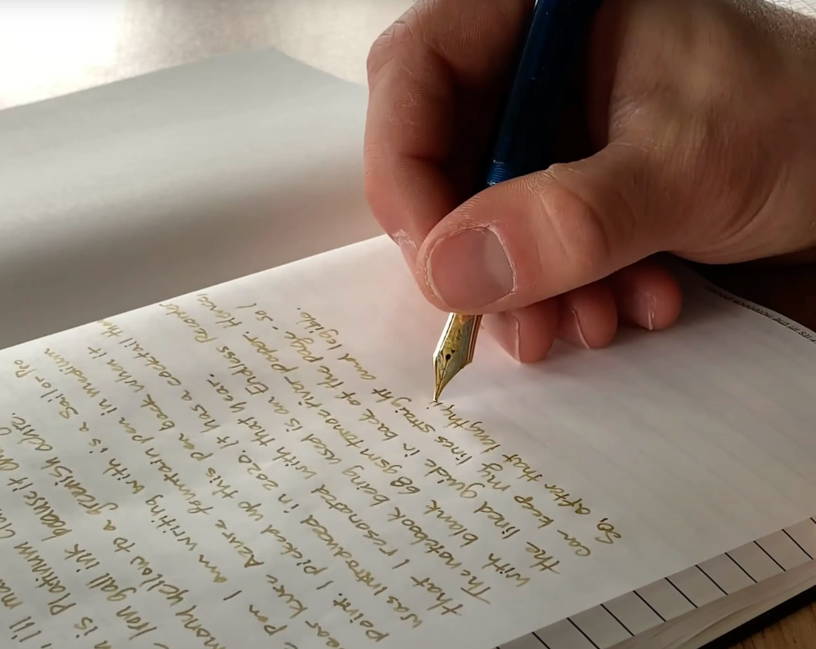 I'll
is Platinum
Iron gall ink because it
yellow to a greenish ochre.
pen I am writing with is a Sailor Pro
Luxe Azure fountain pen in medium
point. I picked up this pen back when it
was introduced in 2020. It has a cocktail
that I resonated with that year.
The notebook being used is an Endless Recorder
with blank 68gsm tomoe river paper. Hence,
the lined guide in back of the page - so I
can keep my lines straight and legible.
So, after that lengthy